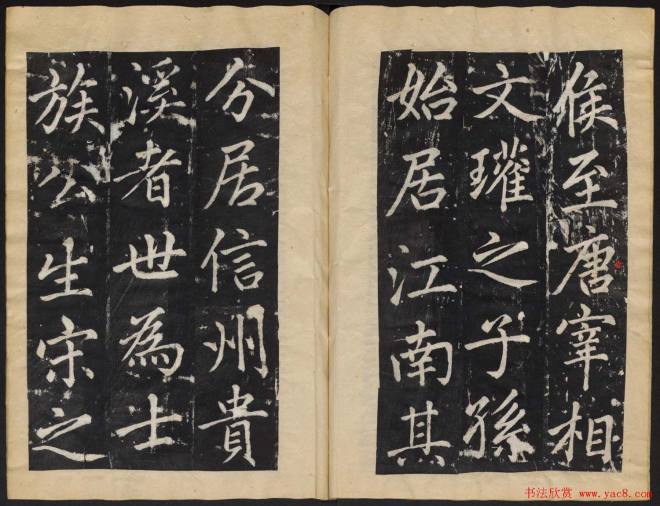 侯至唐宰相
文瓘之子孫
始居江南其
分居信州貴
溪者世為士
族公生宋之
书法欣赏 www.yac8.com